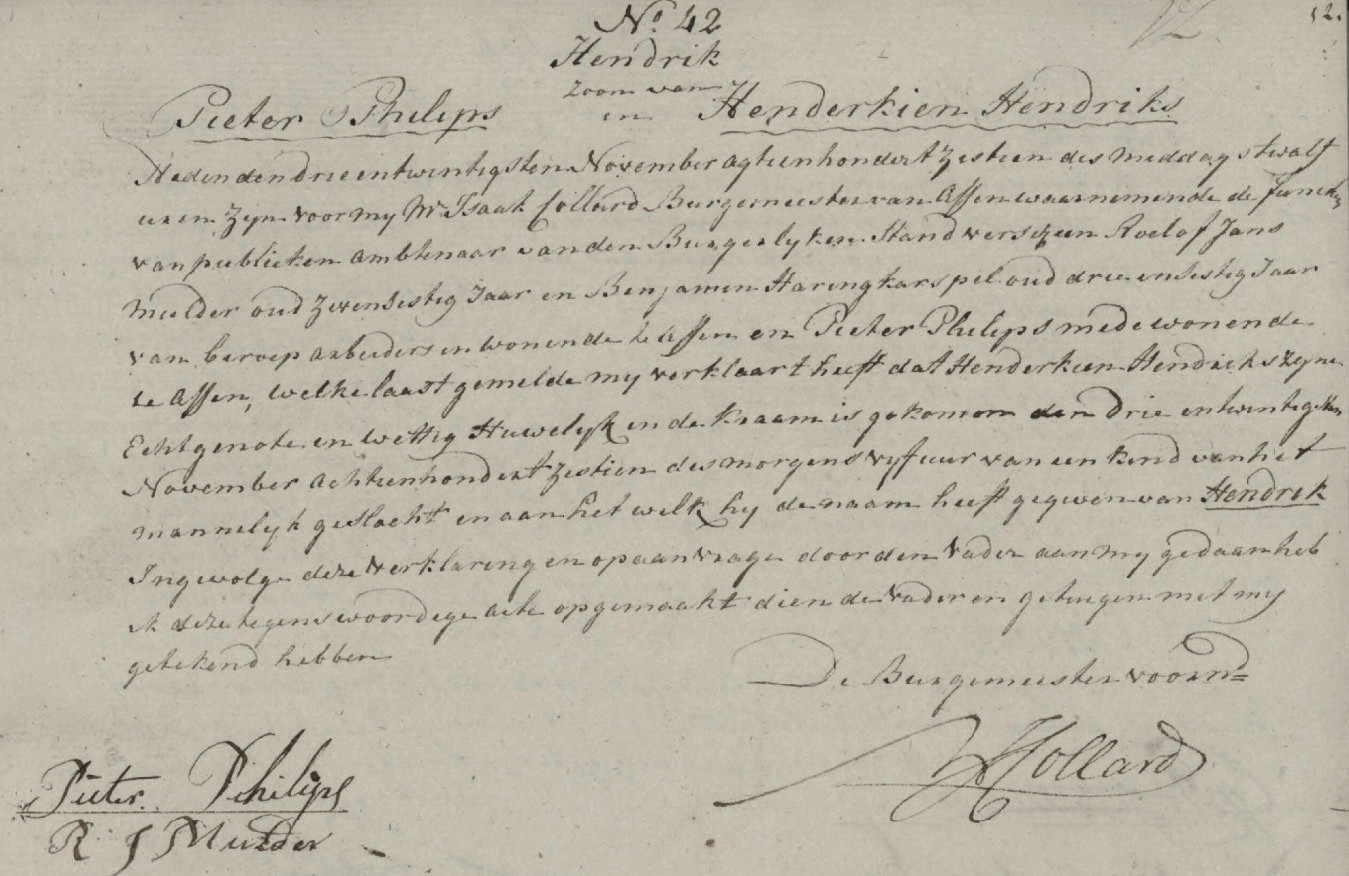 No. 42
12.
Hendrik
zoon van
Pieter Philips en Henderkien Hendriks
Heden den drie entwintigsten November agtienhondert Zestien des middags twalf
uren Zyn voor my Mr Isaak Collard Burgemeester van Assen waarnemende de functien
van publieken ambtenaar van den Burgerlyken Stand verscheen Roelof Jans
Mulder oud Zevensestig Jaar en Benjamen Haringkarspel oud drie ensestig Jaar
van beroep arbeiders en wonende te Assen en Pieter Philips mede wonende
te Assen, welke laast gemelde my verklaart heeft dat Henderkien Hendriks zyne
Echtgenote en wettig Huwelyk in de kraam is gekomen den drie entwintigsten
November achtienhondert Zestien des morgens vyf uur van een kind van het
mannelyk geslacht en aan het welk hy de naam heeft gegeven van Hendrik
Ingevolge deze verklaring en op aanvrage door den vader aan my gedaan heb
ik deze tegenswoordige acte opgemaakt dien de vader en getuigen met my
getekend hebben
De Burgemeester voorn=
Collard
Pieter Philips
R J Mulder